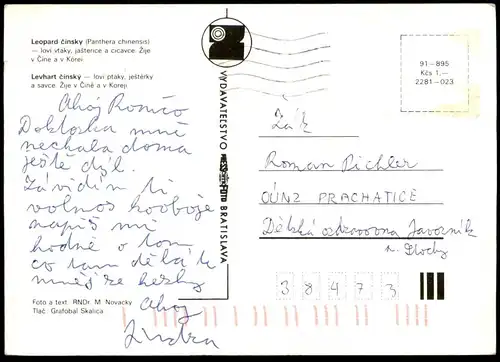 Leopard čínsky (Panthera chinensis)
— loví vtáky, jašterice a cicavce. Žije
v Číne a v Kórei.
Levhart čínský — loví ptáky, ještěrky
a savce. Žije v Číně a v Koreji.
Ahoj Romčo
Doktorka mně
nechala doma
ještě dýl.
Závidím ti
volnos
napiš mi
hodně o tom,
co tam děláte
hezky
Ahoj
Jindra
Foto a text: RNDr. M. Novacký
Tlač: Grafobal Skalica
VYDAVATEĽSTVO PRESSFOTO BRATISLAVA
91-895
Kčs 1,—
2281-023
Žák
Roman Pichler
OÚNZ PRACHATICE
Dětská ozdravovna Javorník
38473